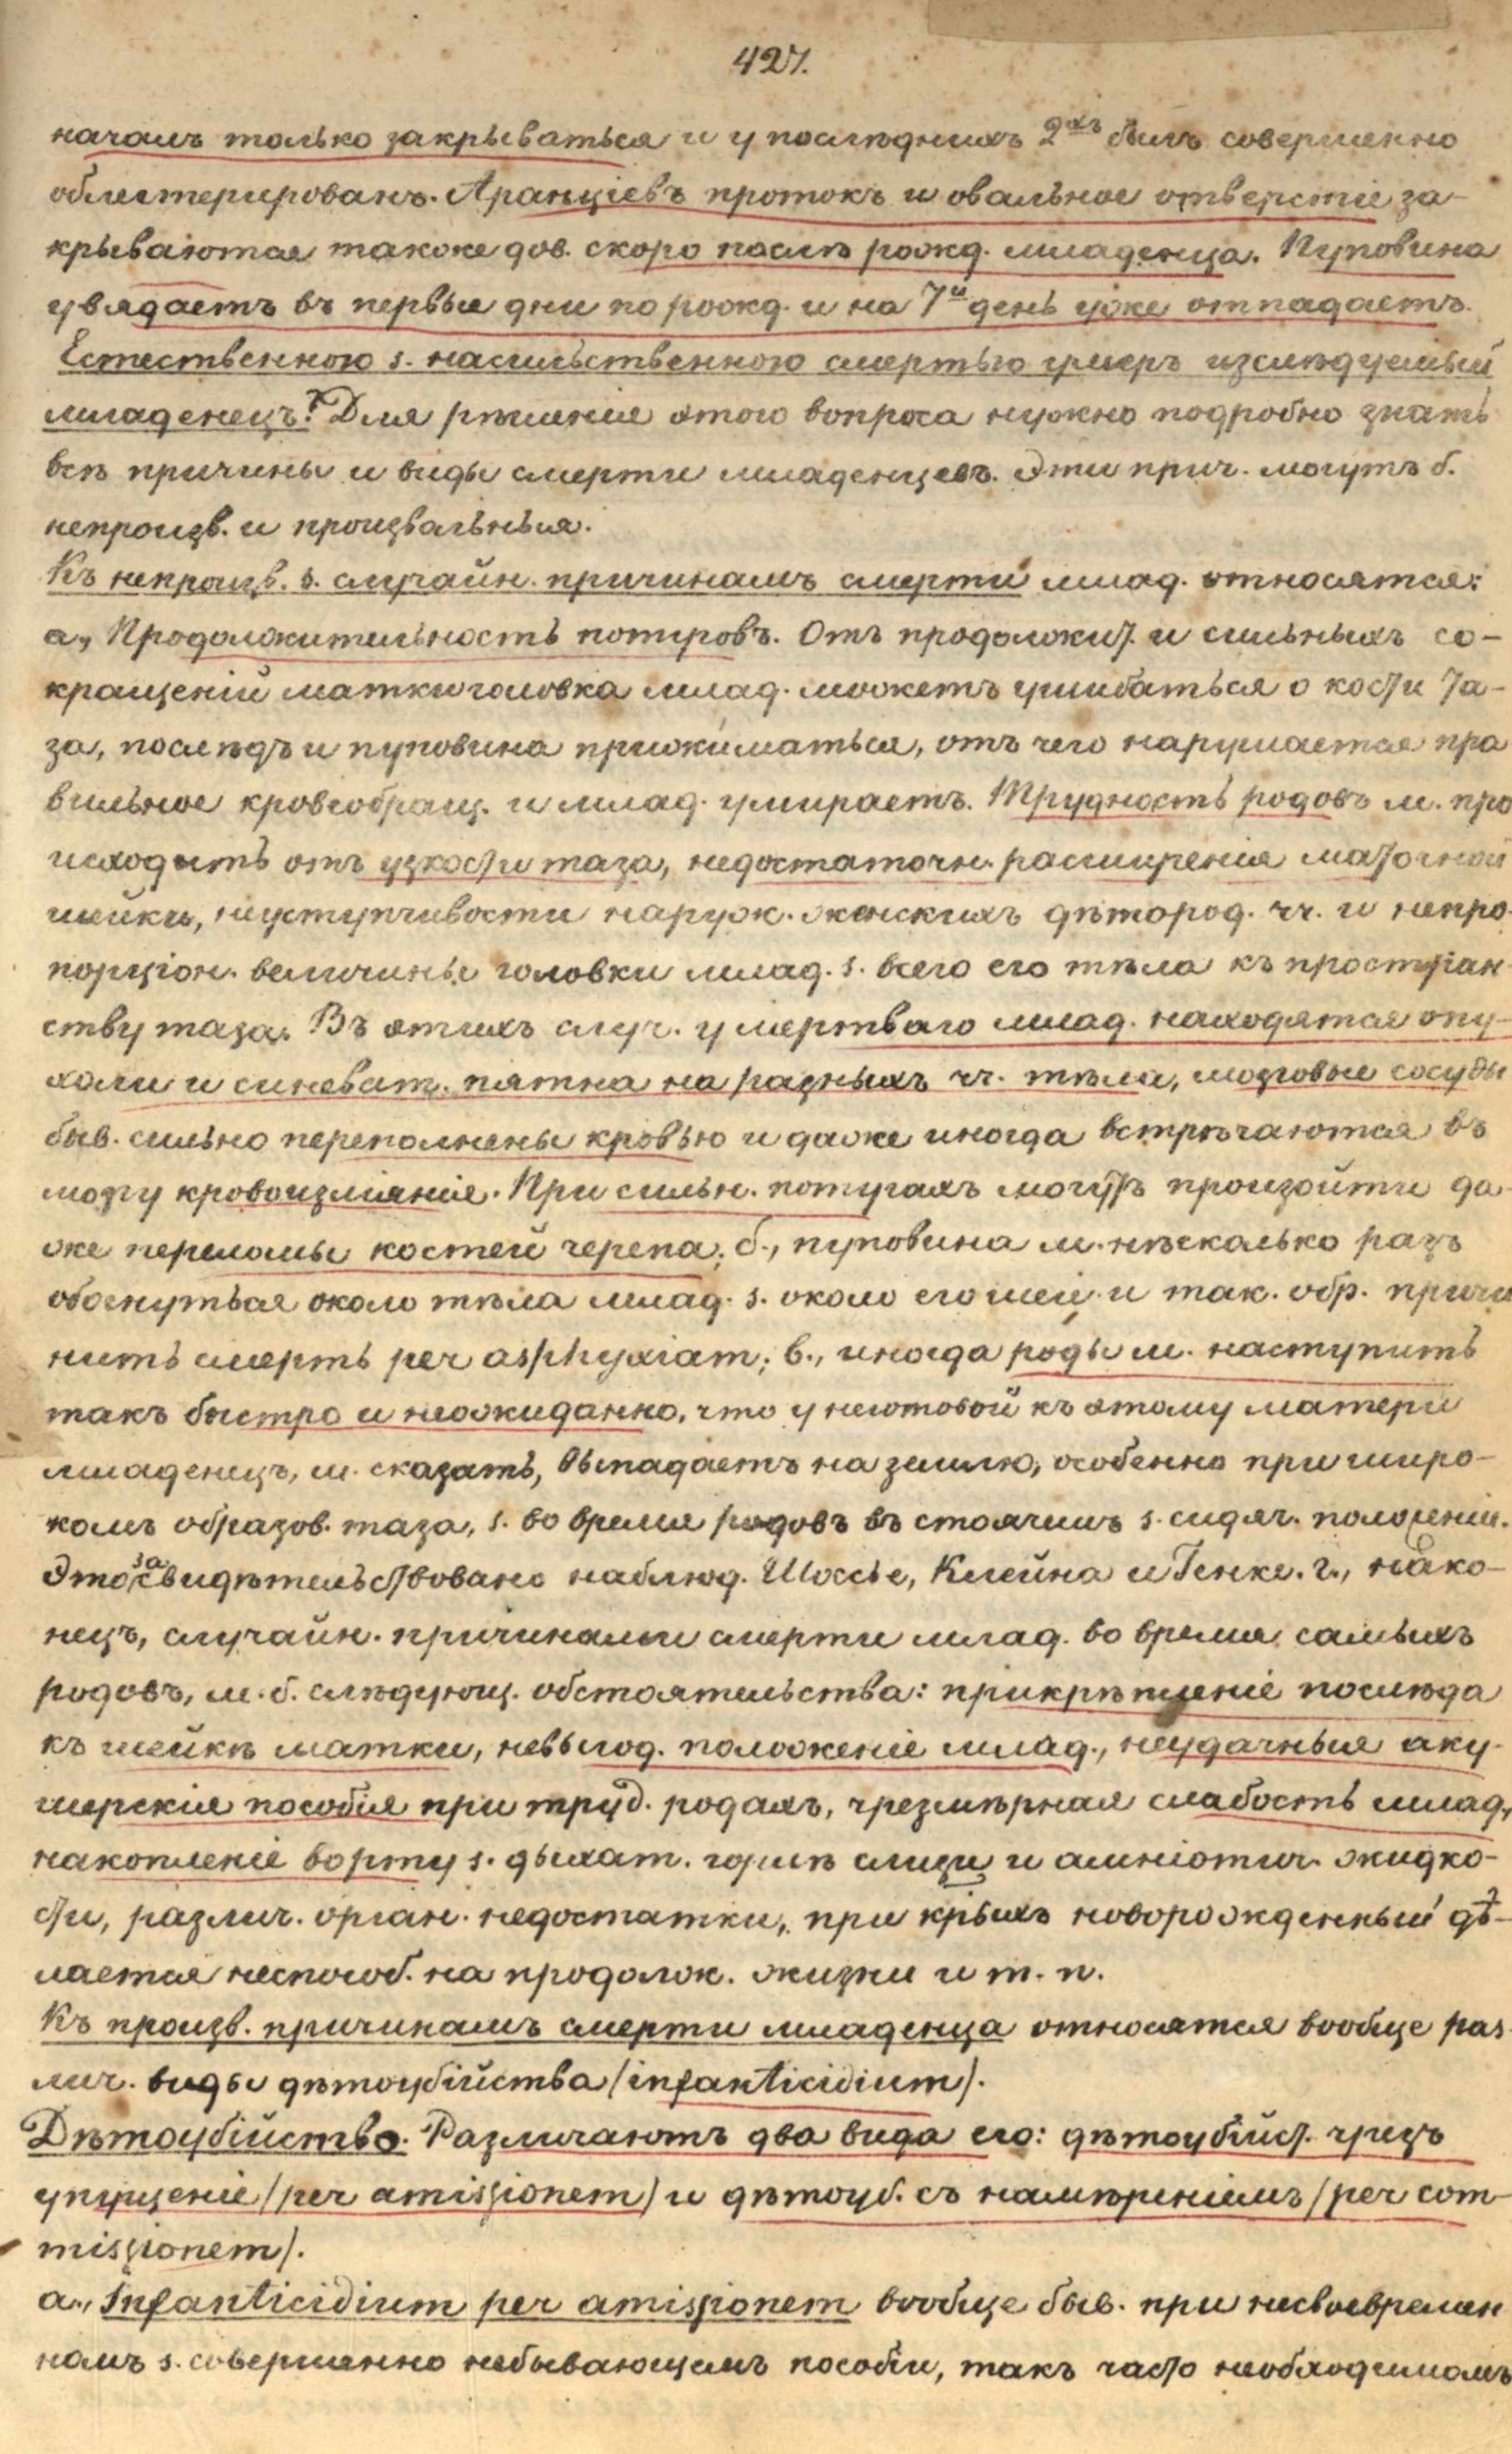 427.
началъ только закрываться и у послѣднихъ 2хъ былъ совершенно
облитерированъ. Аранціевъ протокъ и овальное отверстіе за-
крываются также дов. скоро послѣ рожд. младенца. Пуповина
увядаетъ въ первые дни по рожд. и на 7й день уже отпадаетъ.
Естественною s. насильственною смертью умеръ изслѣдуемый
младенецъ? Для рѣшенія этого вопроса нужно подробно знать
всѣ причины и виды смерти младенцевъ. Эти прич. могутъ б.
непроизв. и произвольныя.
Къ непроизв. s. случайн. причинамъ смерти млад. относятся:
а., Продолжительность потугровъ. Отъ продолжит. и сильныхъ со-
кращеній матки головка млад. можетъ ушибаться о кости та-
за, послѣдъ и пуповина прижиматься, отъ чего нарушается пра
вильное кровеобращ. и млад. умираетъ. Трудность родовъ м. про
исходить отъ узкости таза, недостаточн. расширенія маточной
шейки, неуступчивости наруж. женскихъ дѣтород. чч. и непро-
порціон. величины головки млад. s. всего его тѣла къ простран
ству таза. Въ этихъ случ. у мертваго млад. находятся опу-
холи и синеват. пятна на разныхъ чч. тѣла, мозговые сосуды
быв. сильно переполнены кровью и даже иногда встрѣчаются въ
мозгу кровоизліянія. При сильн. потугахъ могутъ произойти да-
же переломы костей черепа; б., пуповина м. нѣсколько разъ
обогнуться около тѣла млад. s. около его шеи и так. обр. причи
нить смерть per asphyxiam; в., иногда роды м. наступить
такъ быстро и неожиданно, что у неготовой къ этому матери
младенецъ, м. сказать, выпадаетъ на землю, особенно при широ-
комъ образов. таза, s. во время родовъ въ стоячемъ s. сидяч. положеніи.
Это засвидѣтельствовано наблюд. Шоссье, Клейна и Генке. г., нако-
нецъ, случайн. причинами смерти млад. во время самыхъ
родовъ, м. б. слѣдующ. обстоятельства: прикрѣпленіе послѣда
къ шейкѣ матки, невыгод. положеніе млад., неудачныя аку-
шерскія пособія при труд. родахъ, чрезмѣрная слабость млад.,
накопленіе во рту s. дыхат. горлѣ слизи и амніотич. жидко-
сти, различ. орган. недостатки, при крыхъ новорожденный дѣ-
лается неспособ. на продолж. жизни и т. п.
Къ произв. причинамъ смерти младенца относятся вообще раз
лич. виды дѣтоубійства (infanticidium).
Дѣтоубійство. Различаютъ два вида его: дѣтоубійст. чрезъ
упущеніе (per amissionem) и дѣтоуб. съ намѣреніемъ (per com-
missionem).
а., Infanticidium per amissionem вообще быв. при несвоевремен
номъ s. совершенно небывающемъ пособіи, такъ часто необходимомъ